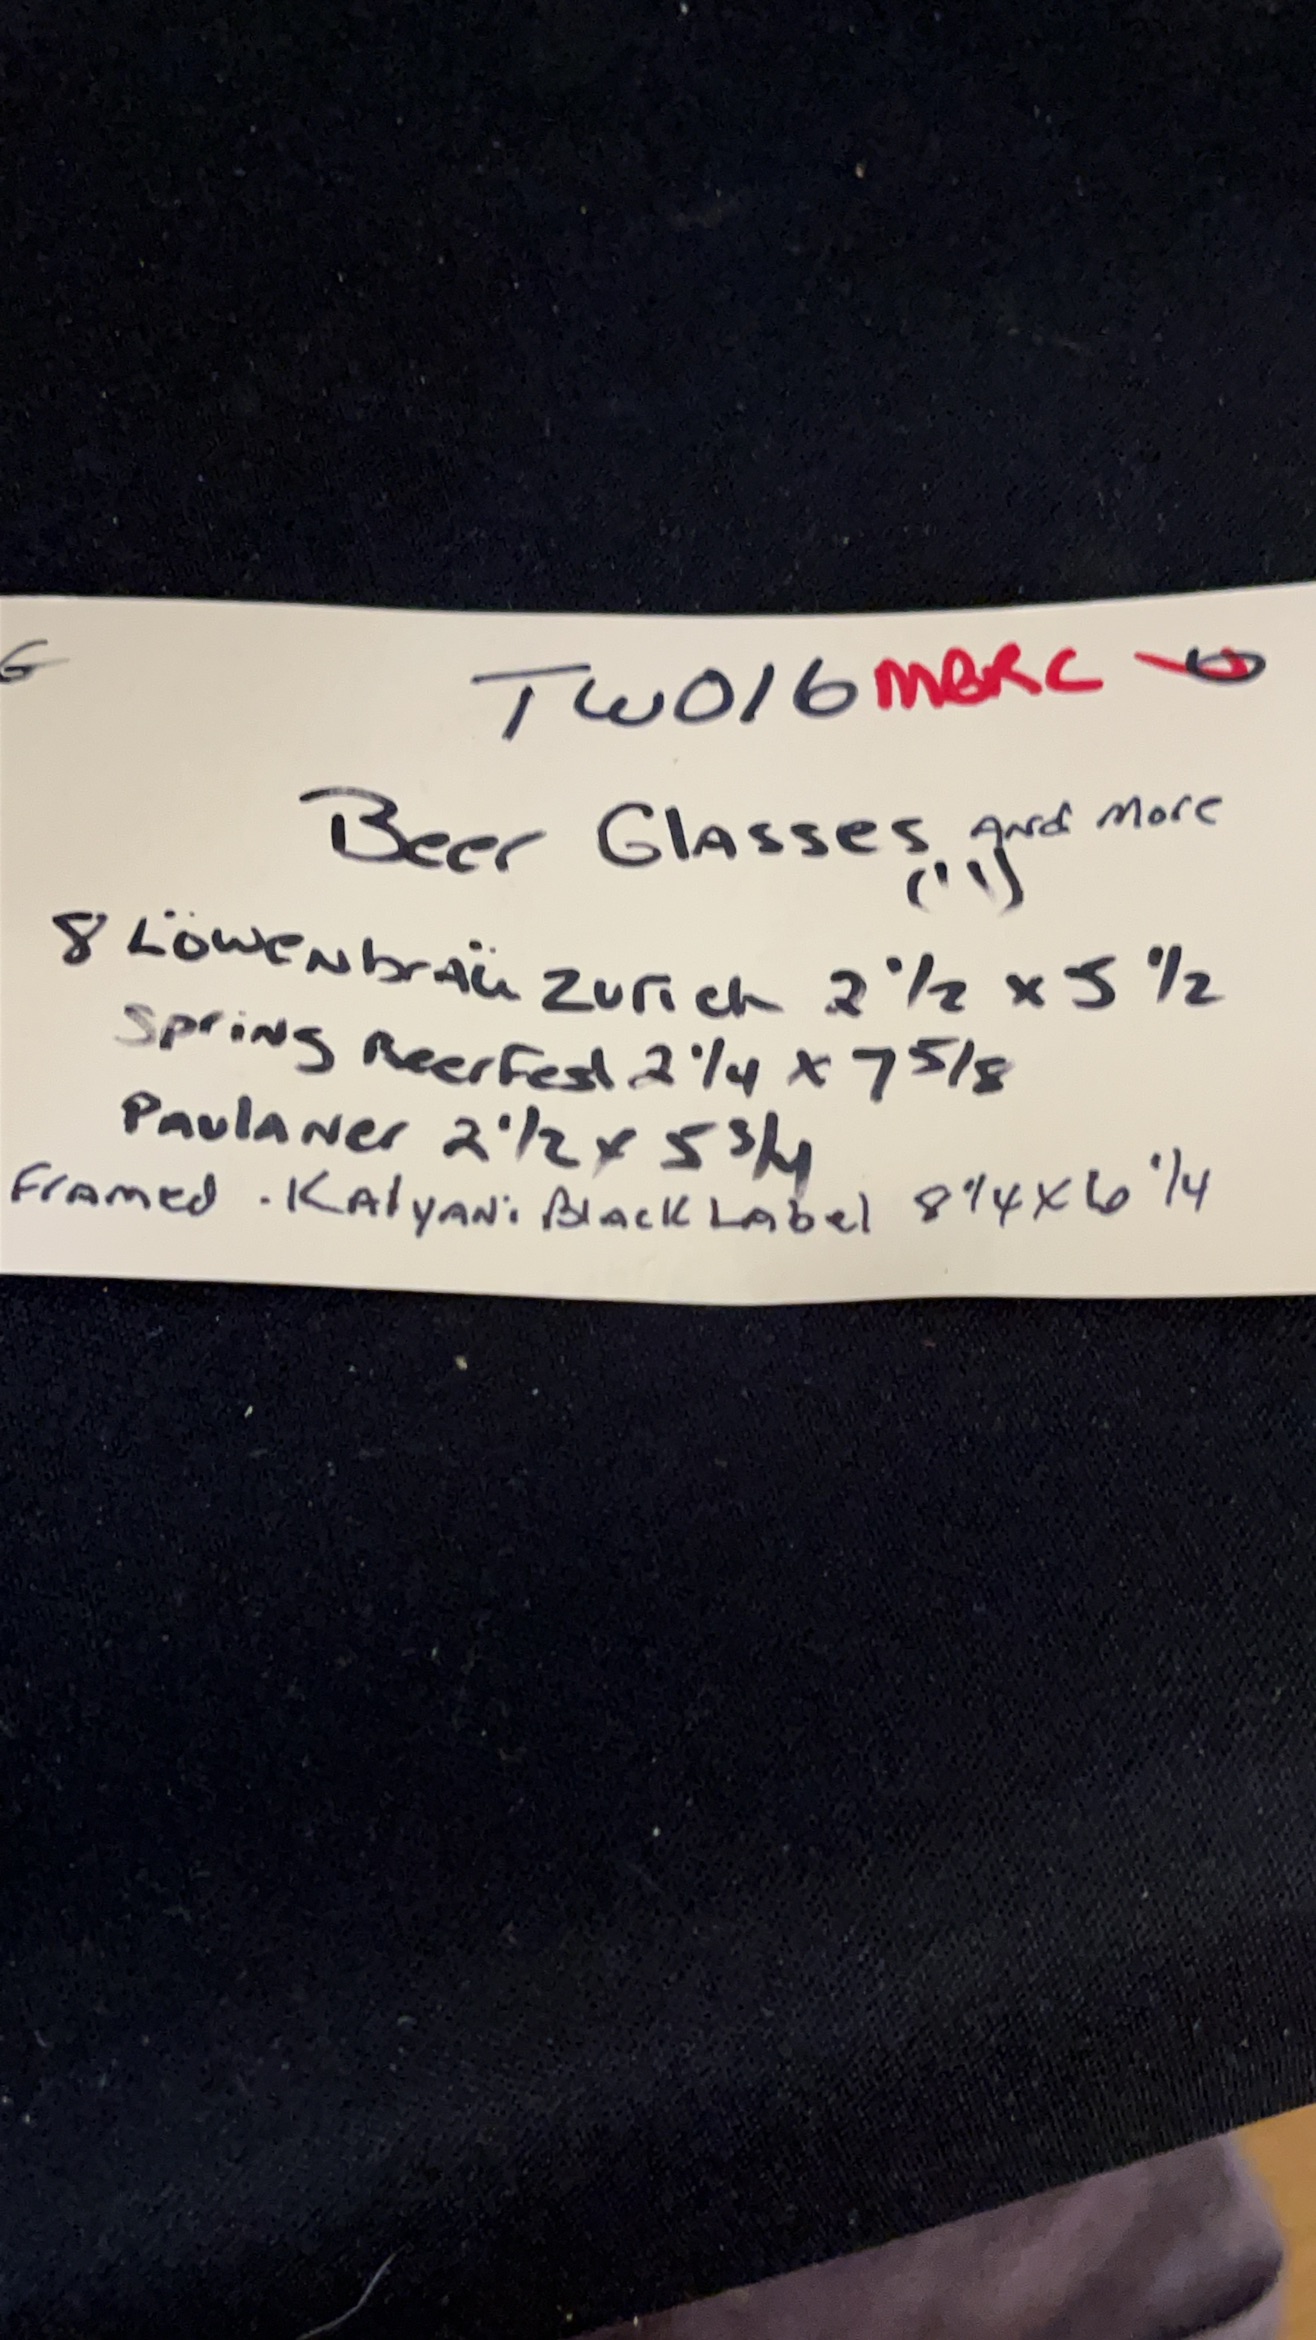 G TW016 MBRC
Beer Glasses and More
(11)
8 Löwenbräu Zurich 2 1/2 x 5 1/2
Spring Beer Fest 2 1/4 x 7 5/8
Paulaner 2 1/2 x 5 3/4
Framed . Kalyani Black Label 8 1/4 x 6 1/4